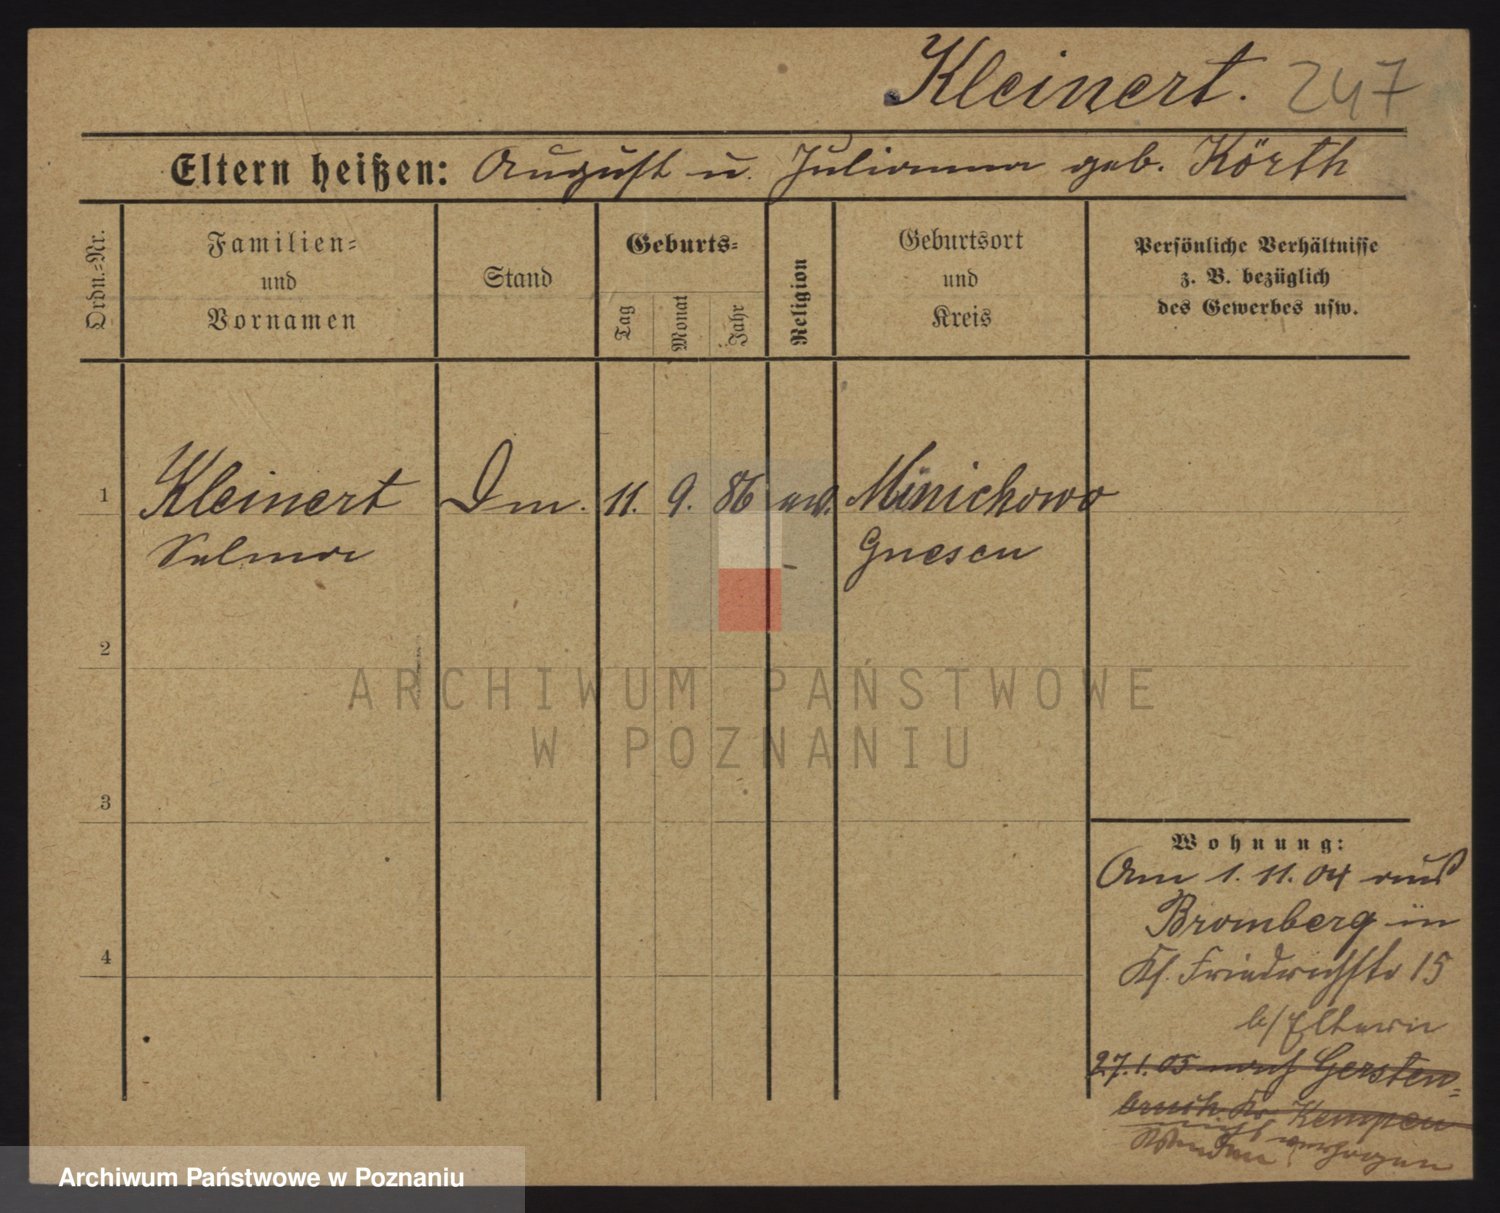 Kleinert. 247
Eltern heißen: August u. Julianna geb. Körth
Ordn.=Nr.
Familien=
und
Vornamen
Stand
Geburts=
Tag
Monat
Jahr
Religion
Geburtsort
und
Kreis
Persönliche Verhältnisse
z. B. bezüglich
des Gewerbes usw.
1 Kleinert 11. 9. 86 Minichowo
Selma Gnesen
2
ARCHIWUM PAŃSTWOWE
W POZNANIU
3
4
Wohnung:
Am 1. 11. 04 aus
Bromberg in
Friedrichstr 15
b/ Eltern
27. 1. 05 nach Gersten-
bruch Kr. Kempen
verzogen
Archiwum Państwowe w Poznaniu